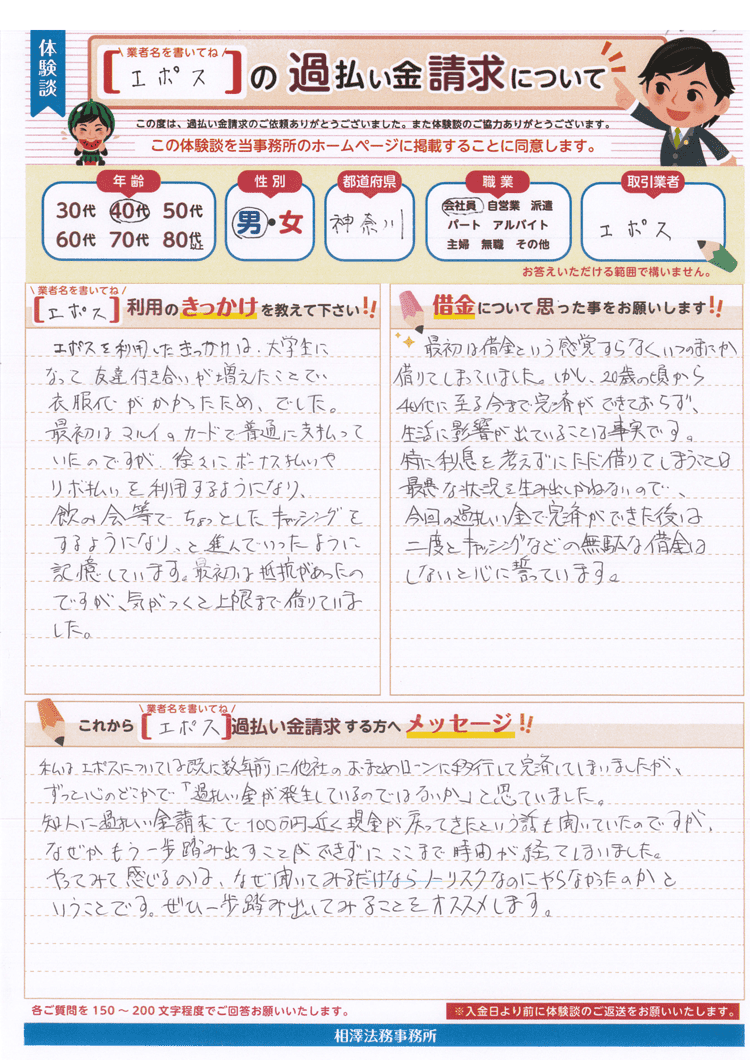 体験談
業者名を書いてね
[エポス]の過払い金請求について
この度は、過払い金請求のご依頼ありがとうございました。また体験談のご協力ありがとうございます。
この体験談を当事務所のホームページに掲載することに同意します。
年齢
30代 40代 50代
60代 70代 80代以上
性別
男・女
都道府県
神奈川
職業
会社員 自営業 派遣
パート アルバイト
主婦 無職 その他
取引業者
エポス
お答えいただける範囲で構いません。
業者名を書いてね
[エポス]利用のきっかけを教えて下さい!!
エポスを利用したきっかけは、大学生に
なって友達付き合いが増えたことで、
衣服代がかかったため、でした。
最初はマルイのカードで普通に支払って
いたのですが、徐々にボーナス払いや
リボ払いを利用するようになり、
飲み会等でちょっとしたキャッシングを
するようになり、と進んでいったように
記憶しています。最初は抵抗があったの
ですが、気がつくと上限まで借りていま
した。
借金について思った事をお願いします!!
最初は借金という感覚すらなくいつのまにか
借りてしまっていました。しかし、20歳の頃から
40代に至る今まで完済ができておらず、
生活に影響が出ていることは事実です。
特に利息を考えずにただ借りてしまうことは
最悪な状況を生み出しかねないので、
今回の過払い金で完済ができた後は
二度とキャッシングなどの無駄な借金は
しないと心に誓っています。
業者名を書いてね
これから[エポス]過払い金請求する方へメッセージ!!
私はエポスについては既に数年前に他社のおまとめローンに移行して完済してしまいましたが、
ずっと心のどこかで「過払い金が発生しているのではないか」と思っていました。
知人に過払い金請求で100万円近く現金が戻ってきたという話も聞いていたのですが、
なぜかもう一歩踏み出すことができずにここまで時間が経ってしまいました。
やってみて感じるのは、なぜ聞いてみるだけならノーリスクなのにやらなかったのかと
いうことです。ぜひ一歩踏み出してみることをオススメします。
各ご質問を150～200文字程度でご回答お願いいたします。
※入金日より前に体験談のご返送をお願いいたします。
相澤法務事務所